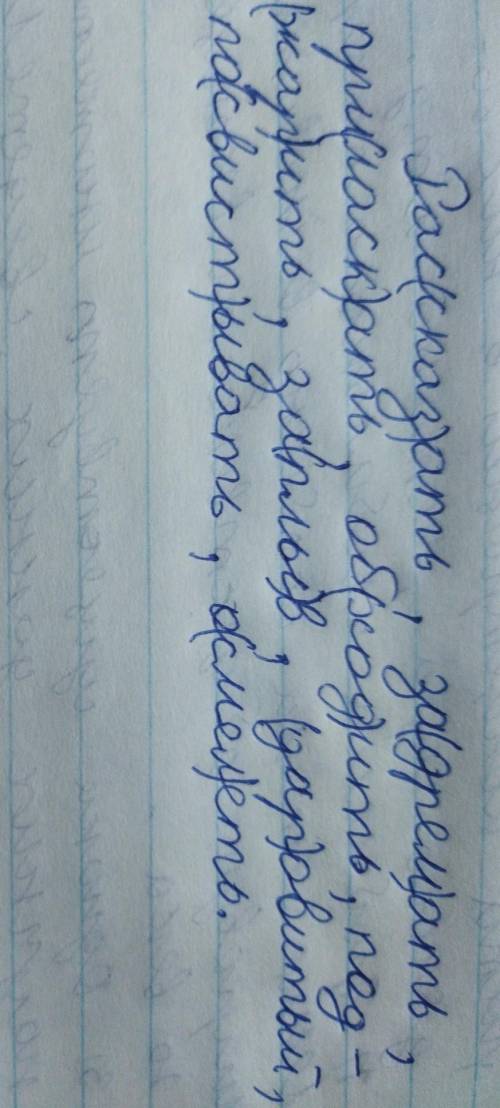 Рас(сказ)ать, за(дрем)ать,
при(ласк)ать, об(ход)ить, под-
(жар)ить, за(плыв), (дар)овитый,
по(свист)ывать, о(смел)еть.